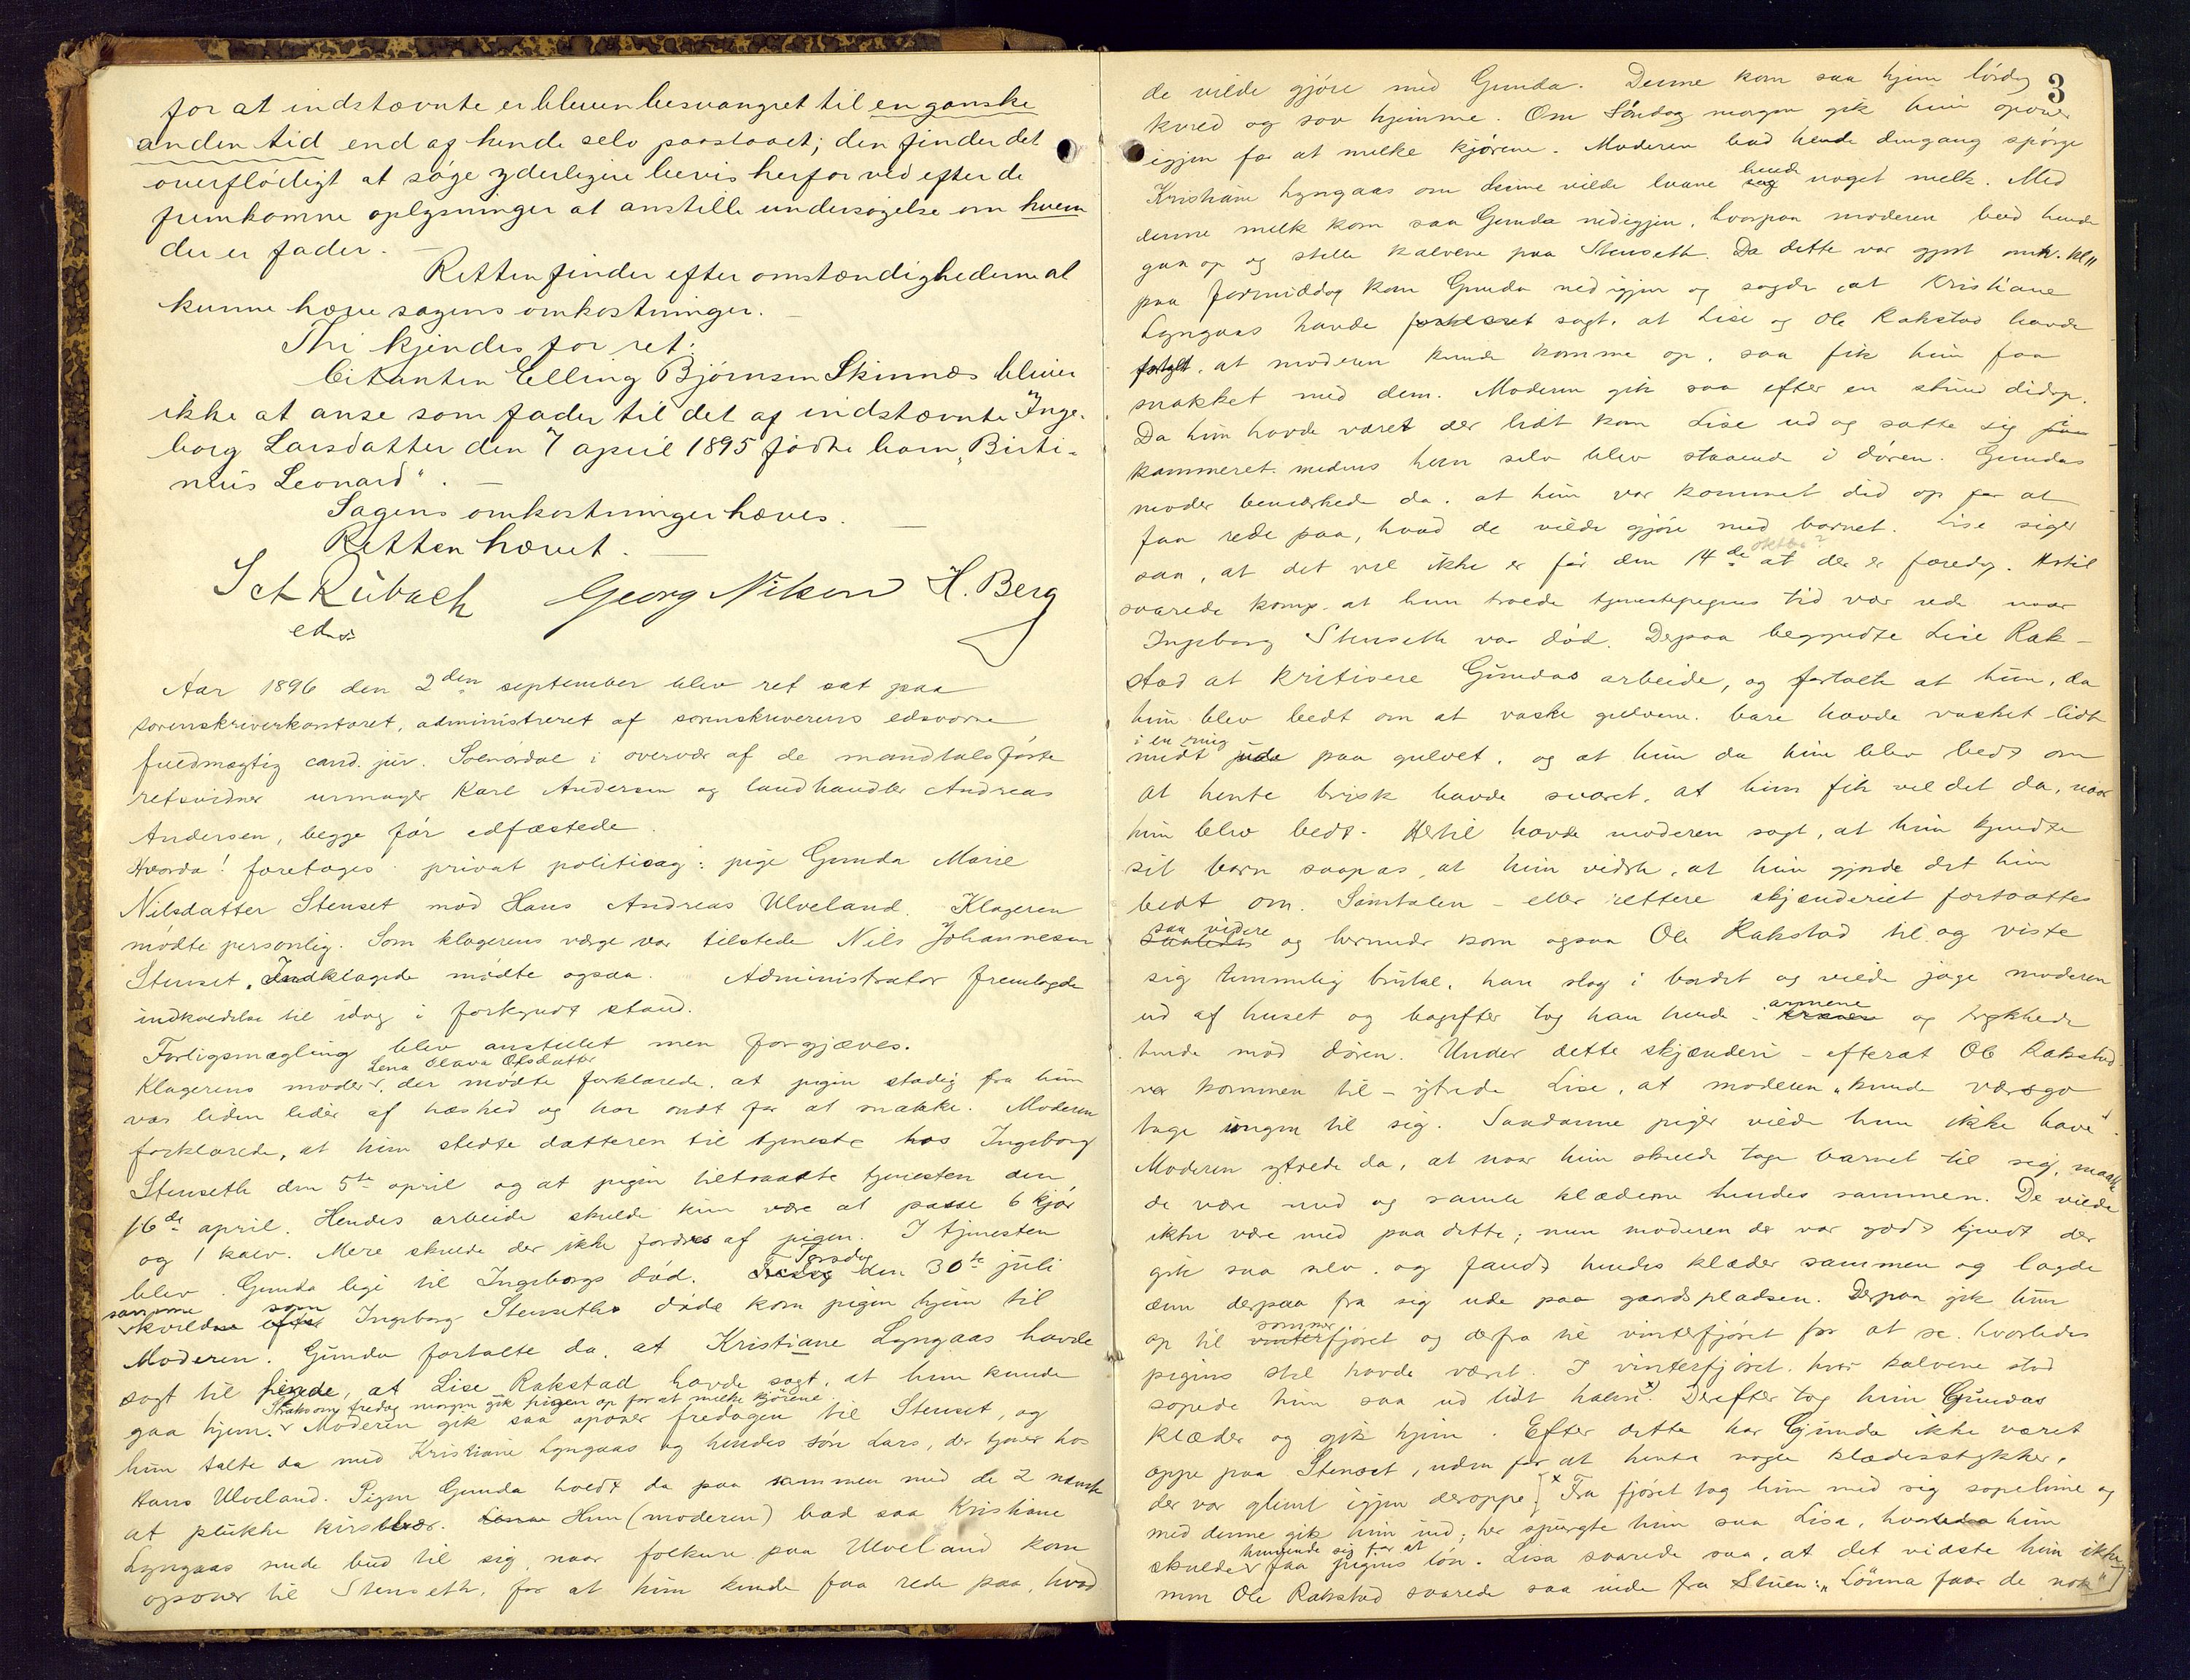 for at indstævnte er bleven besvangret til en ganske
anden tid end af hende selv paastaaet; den finder det
overflödigt at söge yderligere bevis herfor ved efter de
fremkomne oplysninger at anstille undersøgelse om hvem
der er fader. —
Retten finder efter omstændighederne at
kunne hæve sagens omkostninger. —
Thi kjendes for ret:
Citanten Elling Bjørnsen Skinnes bliver
ikke at anse som fader til det af indstævnte Inge-
borg Larsdatter den 7 april 1895 fødte barn, "Birti-
nius Leonard". —
Sagens omkostninger hæves. —
Retten hævet. —
Sct Rübach Georg Nilsen H. Berg
edsv.
Aar 1896 den 2den september blev ret sat paa
sorenskriverkontoret, administreret af sorenskriverens edsvorne
fuldmægtig cand. jur. Solnørdal i overvær af de mandtalsførte
retsvidner urmager Karl Andersen og landhandler Andreas
Andersen, begge før edfæstede.
Hvorda! foretages privat politisag: pige Gunda Marie
Nilsdatter Stenset mod Hans Andreas Ulveland. Klageren
mödte personlig. Som klagerens værge var tilstede Nils Johannesen
Stenset. Indklagede mødte ogsaa. Administrator fremlagde
indkaldelse til idag i forkyndt stand.
Forligsmægling blev anstillet men forgjæves.
Lena Olava Olsdatter
Klagerens moder, der mødte forklarede, at pigen stadig fra hun
var liden lider af hæshed og har ondt for at snakke. Moderen
forklarede, at hun stedte datteren til tjeneste hos Ingeborg
Stenseth den 5te april og at pigen tiltraadte tjenesten den
16de april. Hendes arbeide skulde kun være at passe 6 kjør
og 1 kalv. Mere skulde der ikke fordres af pigen. I tjenesten
blev Gunda lige til Ingeborgs død. Torsdag den 30te juli
samme kveld som Ingeborg Stenseth døde kom pigen hjem til
Moderen. Gunda fortalte da, at Kristiane Lyngaas havde
sagt til hende, at Lise Rakstad havde sagt, at hun kunde
Straks om fredag morgen gik pigen op for at melke kjörene.
gaa hjem. Moderen gik saa opover fredagen til Stenset, og
hun talte da med Kristiane Lyngaas og hendes søn Lars, der tjener hos
Hans Ulveland. Pigen Gunda holdt da paa sammen med de 2 nævnte
at plukke kirsbær. Hun (moderen) bad saa Kristiane
Lyngaas sende bud til sig, naar folkene paa Ulveland kom
opover til Stenseth, for at hun kunde faa rede paa, hvad
3
de vilde gjöre med Gunda. Denne kom saa hjem lördag
kveld og sov hjemme. Om Söndag morgen gik hun opover
igjen for at melke kjörene. Moderen bad hende dengang spørge
Kristiane Lyngaas om denne vilde laane hende noget melk. Med
denne melk kom saa Gunda ned igjen, hvorpaa moderen bad hende
gaa op og stelle kalvene paa Stenseth. Da dette var gjort omkr. kl 11
paa formiddag kom Gunda ned igjen og sagde, at Kristiane
Lyngaas havde sagt, at Lise og Ole Rakstad havde
fortalt, at moderen kunde komme op, saa fik hun faa
snakket med dem. Moderen gik saa efter en stund didop.
Da hun havde været der lidt kom Lise ud og satte sig i
kammeret medens hun selv blev staaende i døren. Gundas
moder bemærkede da, at hun var kommet did op for at
faa rede paa, hvad de vilde gjöre med barnet. Lise siger
saa, at det vel ikke er før den 14de at der er faredag. Hertil
oktbr?
svarede komp. at hun troede tjenestepigens tid var ude naar
Ingeborg Stenseth var død. Derpaa begyndte Lise Rak-
stad at kritisere Gundas arbeide, og fortalte at hun, da
hun blev bedt om at vaske gulvene, bare havde vasket lidt
i en ring
midt paa gulvet, og at hun da hun blev bedt om
at hente brisk havde svaret, at hun fik vel det da, naar
hun blev bedt. Hertil havde moderen sagt, at hun kjendte
sit barn saapas, at hun vidste, at hun gjorde det hun
bedt om. Samtalen – eller rettere skjænderiet fortsattes
saa videre og herunder kom ogsaa Ole Rakstad til og viste
sig temmelig brutal, han slog i bordet og vilde jage moderen
ud af huset og bagefter tog han hende i armene og trykkede
hende mod døren. Under dette skjænderi – efterat Ole Rakstad
var kommen til – ytrede Lise, at moderen „kunde værsgo
tage ungen til sig. Saadanne piger vilde hun ikke have".
Moderen ytrede da, at naar hun skulde tage barnet til sig, maatte
de være med og samle klæderne hendes sammen. De vilde
ikke være med paa dette; men moderen der var godt kjendt der
gik saa selv og fandt hendes klæder sammen og lagde
dem derpaa fra sig ude paa gaardspladsen. Derpaa gik hun
op til sommerfjöset og derfra til vinterfjöset for at se, hvorledes
pigens stel havde været. I vinterfjöset, hvor kalvene stod
sopede hun saa ud lidt halm x). Derefter tog hun Gundas
klæder og gik hjem. Efter dette har Gunda ikke været
oppe paa Stenset, uden for at hente nogle klædesstykker,
der var glemt igjen deroppe. [x Fra fjöset tog hun med sig sopelime og
med denne gik hun ind; her spurgte hun saa Lisa, hvorledes hun
skulde henvende sig for at faa pigens løn. Lisa svarede saa, at det vidste hun ikke
men Ole Rakstad svarede saa inde fra Stuen: „Lönna faar de nok"]